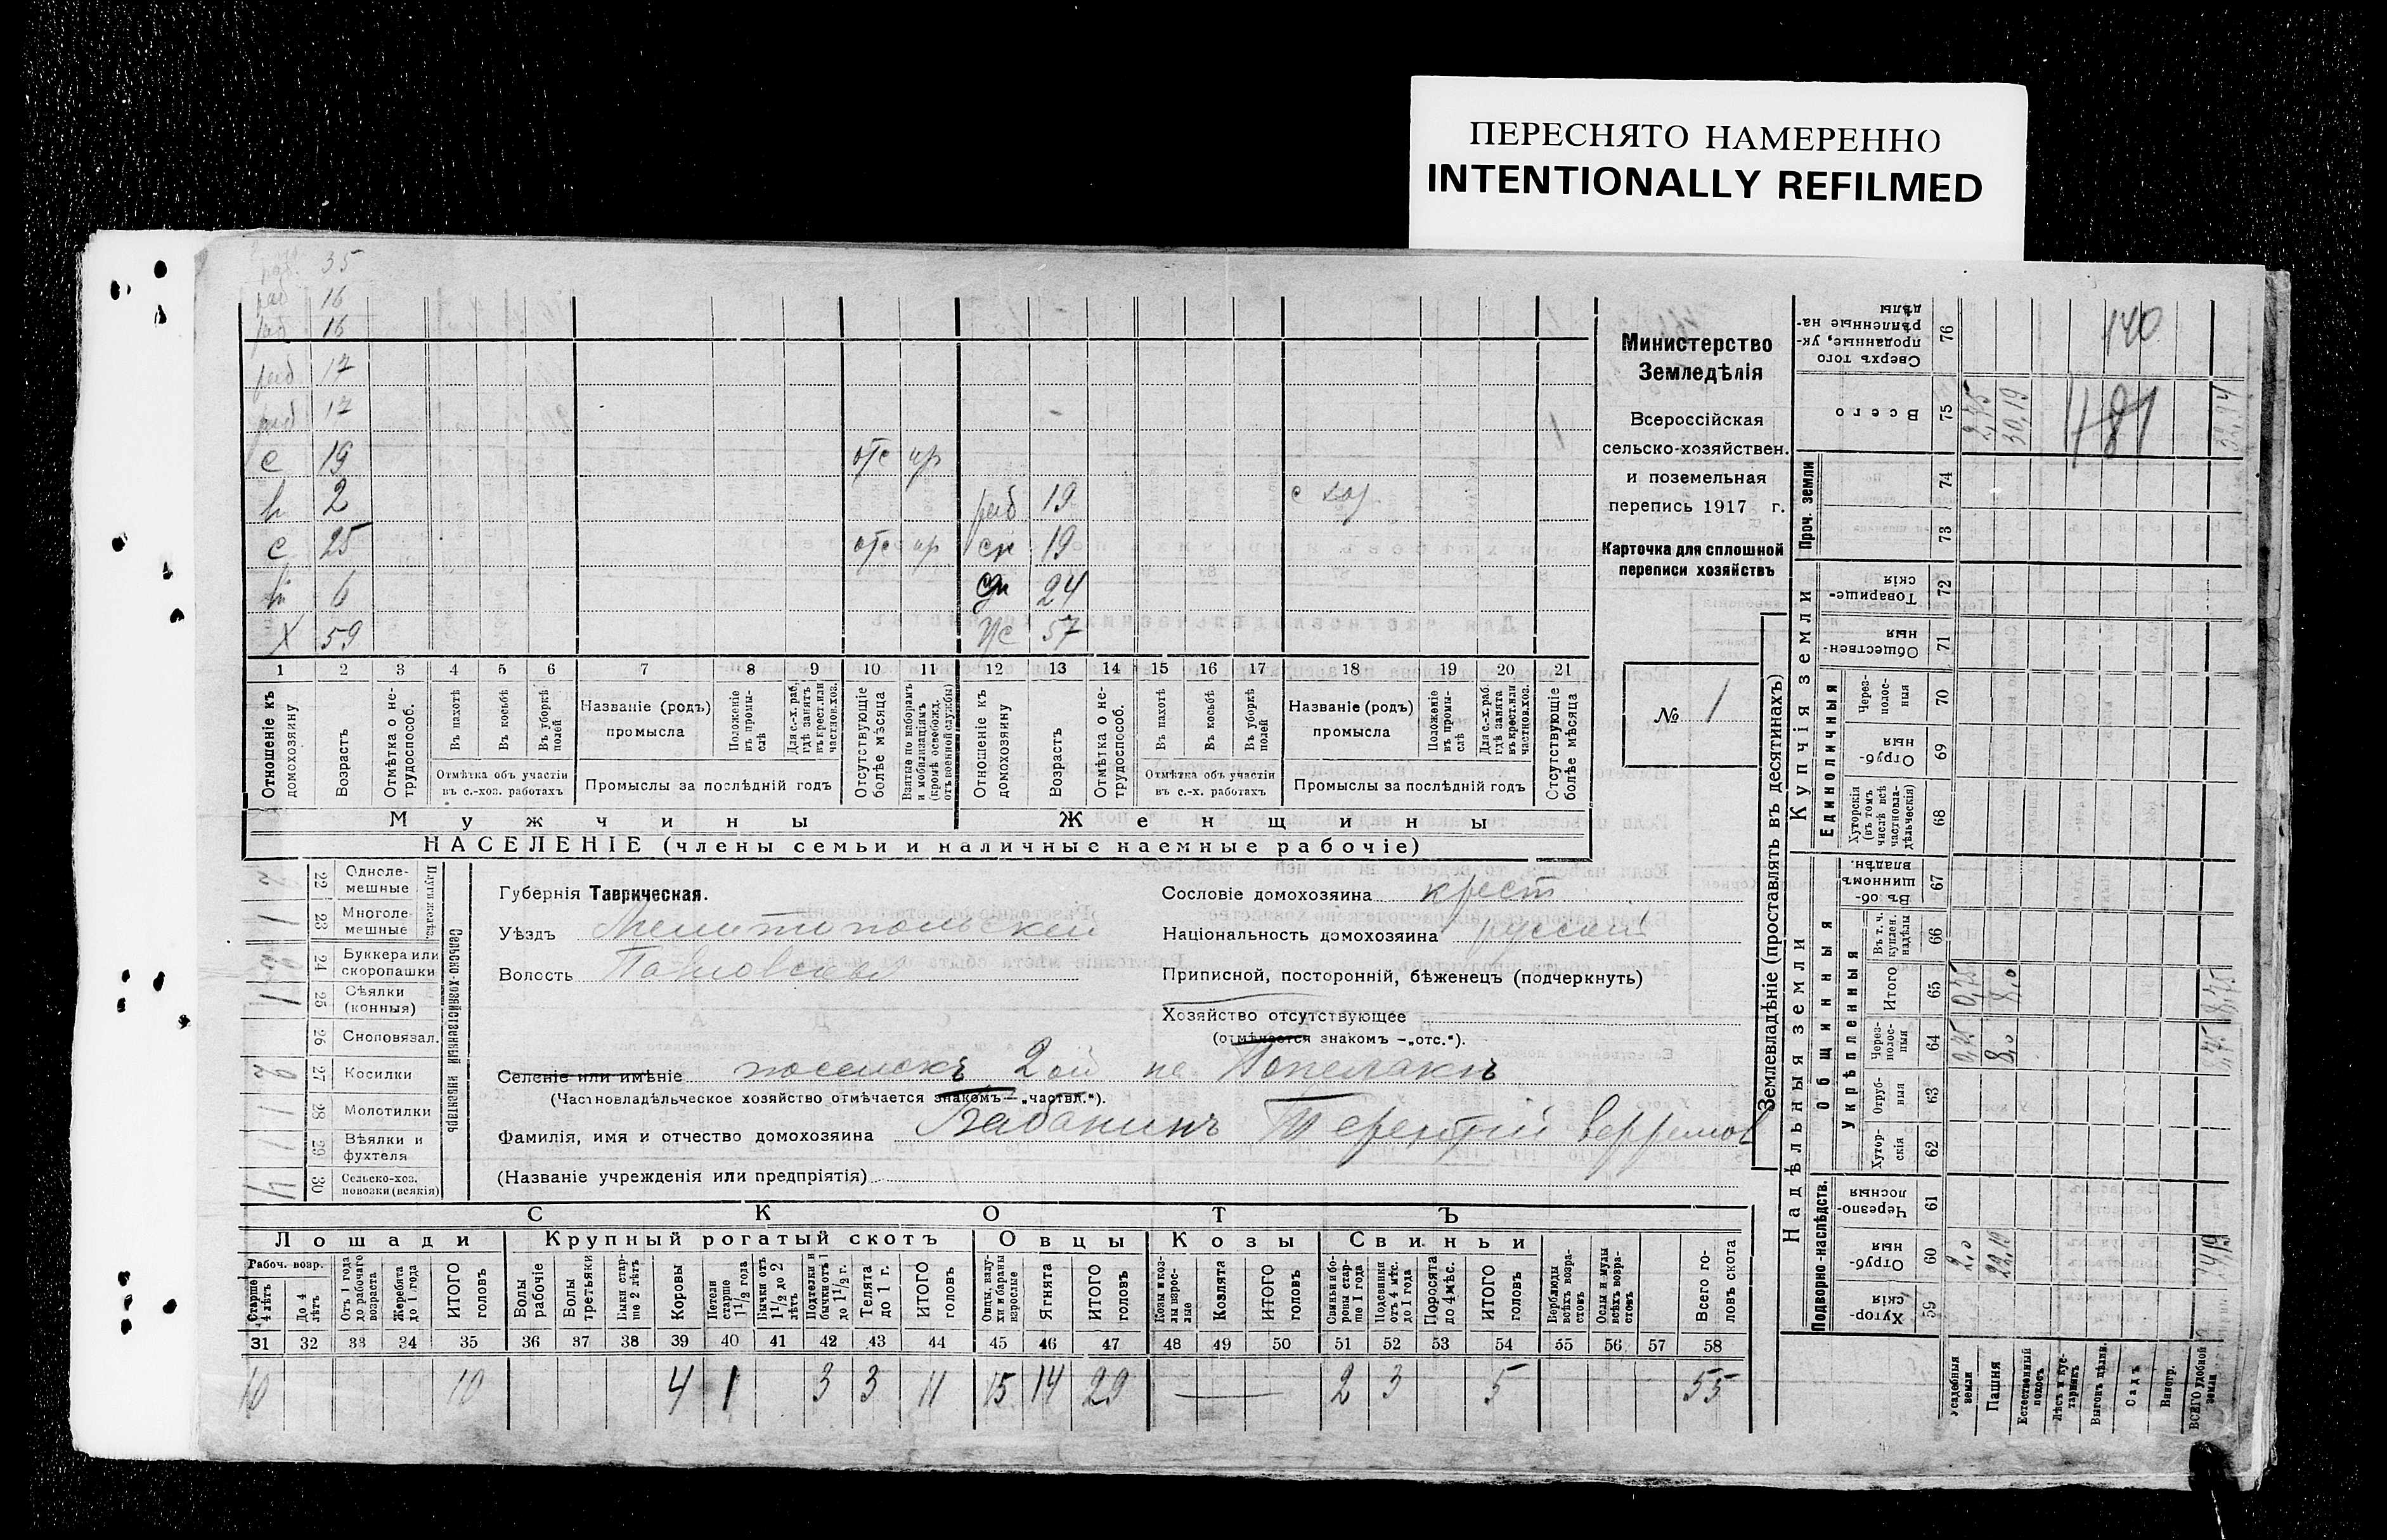 ПЕРЕСНЯТО НАМЕРЕННО
INTENTIONALLY REFILMED
раб. 35
раб 16
раб 16
раб 17
раб 17
с 19 отс пр
2 раб 19
с 25 отс пр сн 19
6 сн 24
Х 59 57
1 2 3 4 5 6 7 8 9 10 11 12 13 14 15 16 17 18 19 20 21
Отношеніе къ домохозяину.
Возрастъ
Отмѣтка о нетрудоспособ.
Въ пахотѣ
Въ косьбѣ
Въ уборкѣ полей
Отмѣтка объ участіи въ с.-хоз. работахъ
Названіе (родъ) промысла
Положеніе въ промыслѣ
Для с.-х. раб, гдѣ занятъ въ крест. или частнов. хоз.
Промыслы за послѣдній годъ
Отсутствующіе болѣе мѣсяца
Взятые по наборамъ и мобилизаціямъ (кромѣ освобожд. отъ военной службы)
Отношеніе къ домохозяину
Возрастъ
Отмѣтка о нетрудоспособ.
Въ пахотѣ
Въ косьбѣ
Въ уборкѣ полей
Отмѣтка объ участіи въ с.-х. работахъ
Названіе (родъ) промысла
Положеніе въ промыслѣ
Для с.-х. раб. гдѣ занята въ крест. или частнов. хоз.
Промыслы за послѣдній годъ
Отсутствующіе болѣе мѣсяца
Мужчины Женщины
НАСЕЛЕНІЕ (члены семьи и наличные наемные рабочіе)
Министерство
Земледѣлія
Всероссійская
сельско-хозяйствен.
и поземельная
перепись 1917 г.
Карточка для сплошной
переписи хозяйствъ
№ 1
22 Однолемешные
23 Многолемешные
24 Буккера или скоропашки
25 Сѣялки (конныя)
26 Сноповязал.
27 Косилки
28 Молотилки
29 Вѣялки и фухтеля
30 Сельско-хоз. повозки (всякія)
Сельско-хозяйственный инвентарь
Губернія Таврическая.
Уѣздъ Мелитопольскій
Волость
Сословіе домохозяина крест
Національность домохозяина русскій
Приписной, посторонній, бѣженецъ (подчеркнуть)
Хозяйство отсутствующее
(отмѣчается знакомъ —„отс.“).
Селеніе или имѣніе поселокъ 2ой
(Частновладѣльческое хозяйство отмѣчается знакомъ—„частвл.“).
Фамилія, имя и отчество домохозяина Терентій
(Названіе учрежденія или предпріятія)
СКОТЪ
Лошади Крупный рогатый скотъ Овцы Козы Свиньи
Рабоч. возр.
Старше 4 лѣтъ
До 4 лѣтъ
Отъ 1 года до рабочаго возраста
Жеребята до 1 года
ИТОГО головъ
Волы рабочіе
Волы третьяки
Быки старше 2 лѣтъ
Коровы
Нетели старше 1 1/2 года
Бычки отъ 1 1/2 до 2 лѣтъ
Подтелки и бычки отъ 1 до 1 1/2 г.
Телята до 1 г.
ИТОГО головъ
Овцы, валухи и бараны взрослые
Ягнята
ИТОГО головъ
Козы и козлы взрослые
Козлята
ИТОГО головъ
Свиньи и боровы старше 1 года
Подсвинки отъ 4 мѣс. до 1 года
Поросята до 4 мѣс.
ИТОГО головъ
Верблюды всѣхъ возрастовъ
Ослы и мулы всѣхъ возрастовъ
Всего головъ скота
31 32 33 34 35 36 37 38 39 40 41 42 43 44 45 46 47 48 49 50 51 52 53 54 55 56 57 58
10 10 4 1 3 3 11 15 14 29 — 2 3 5 55
Землевладѣніе (проставлять въ десятинахъ)
Купчія земли
Надѣльныя земли
Проч. земли
Единоличныя
Общинныя
Укрѣпленныя
Подворно-наслѣдств.
76 Сверхъ того проданные, укрѣпленные надѣлы 140
75 Всего 2,75 30,19 481
74
73
72 Товарищескія
71 Общественныя
70 Черезполосныя
69 Отрубныя
68 Хуторскія (въ томъ числѣ всѣ частновладѣльческія)
67 Въ общинномъ владѣн.
66 Въ т. ч. куплен. надѣлы
65 Итого 0,75 8,0 8,75
64 Черезполосныя 0,75 8,0 8,75
63 Отрубныя
62 Хуторскія
61 Черезполосныя
60 Отрубныя 2,0 22,19
59 Хуторскія
Усадебныя земли
Пашня
Естественный покосъ
Лѣсъ и кустарникъ
Выгонъ цѣлин.
Садъ
Виногр.
ВСЕГО удобной земли